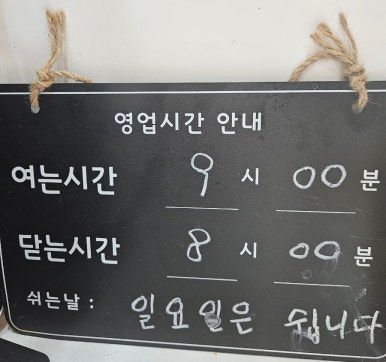 영업시간 안내
여는시간 9 시 00 분
닫는시간 8 시 00 분
쉬는날 : 일요일은 쉽니다